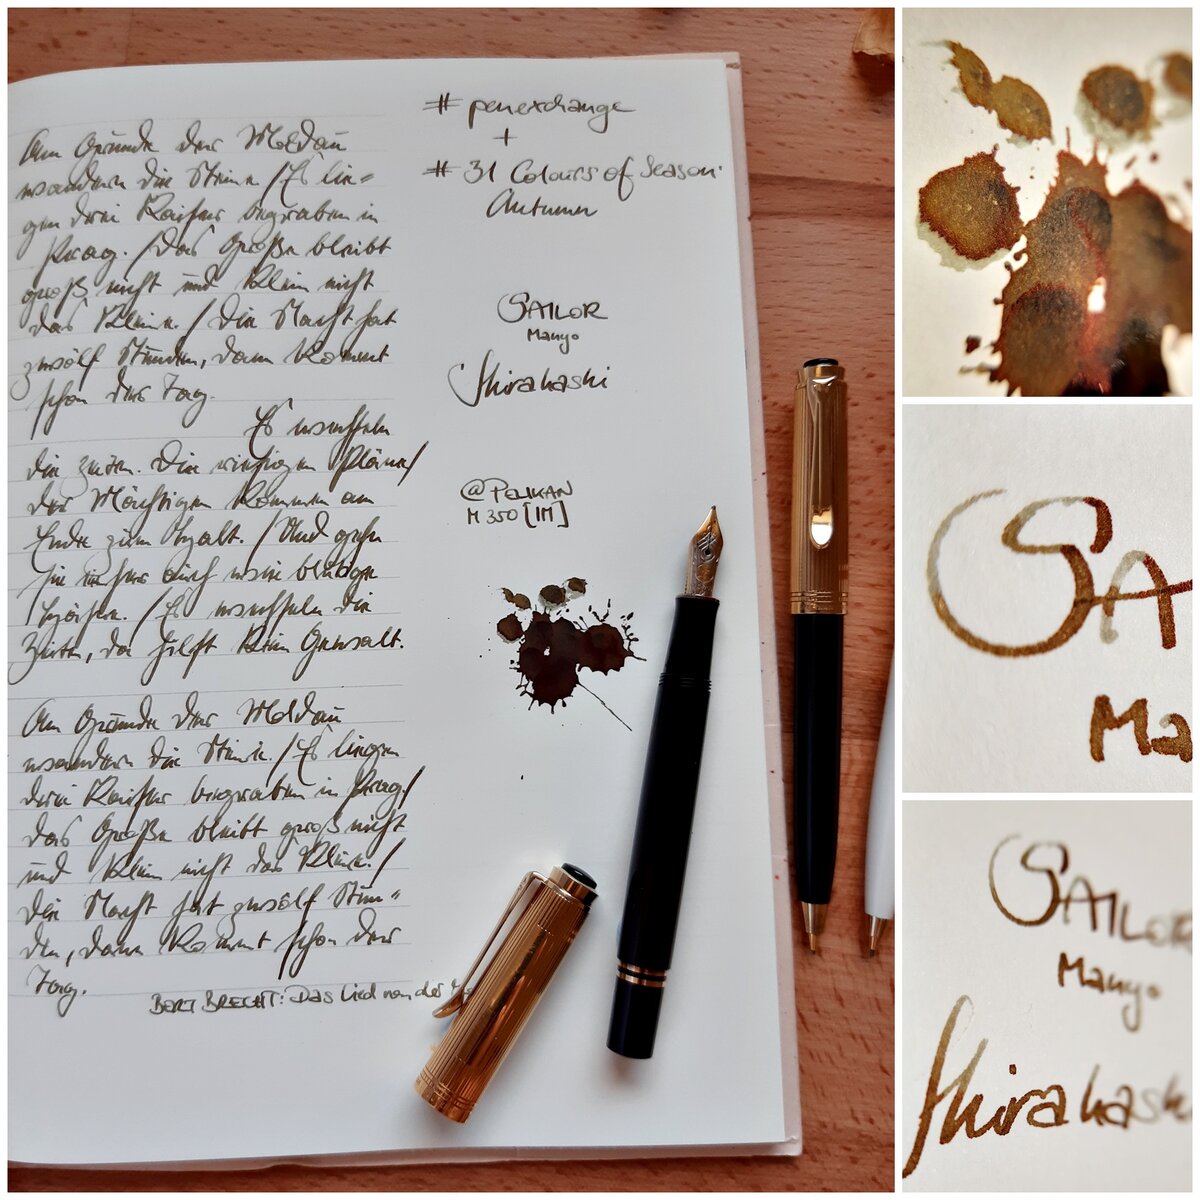 Am Grunde der Moldau
wandern die Steine / Es lie=
gen drei Kaiser begraben in
Prag. / Das Große bleibt
groß nicht und klein nicht
das Kleine. / Die Nacht hat
zwölf Stunden, dann kommt
schon der Tag.
Es wechseln
die Zeiten. Die riesigen Pläne /
der Mächtigen kommen am
Ende zum Halt. / Und gehn
sie einher auch wie blutige
/ Es wechseln die
Zeiten, da hilft kein Gewalt.
Am Grunde der Moldau
wandern die Steine. / Es liegen
drei Kaiser begraben in Prag /
das Große bleibt groß nicht
und klein nicht das Kleine. /
Die Nacht hat zwölf Stun=
den, dann kommt schon der
Tag.
BERT BRECHT: Das Lied von der
# penexchange
+
# 31 Colours of Season:
Autumn
SAILOR
Manyo
Shirakashi
@PELIKAN
M 350 [IM]
SA
Ma
SAILOR
Manyo
Shirakashi